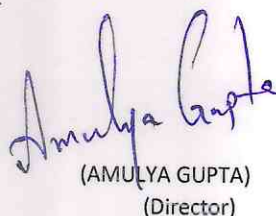 Amulya Gupta
(AMULYA GUPTA)
(Director)